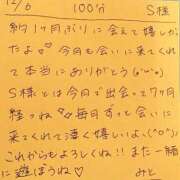 12/6 100分 S様
約1ヶ月ぶりに会えて嬉しかっ
たよ♡今月も会いに来てくれ
て本当にありがとう(o'ω'o)
S様とは今月で出会って7ヶ月
経つね♡♡毎月ずっと会いに
来てくれて凄く嬉しいよ、(^o^)
これからもよろしくね!!また一緒
に遊ぼうね♡ みと